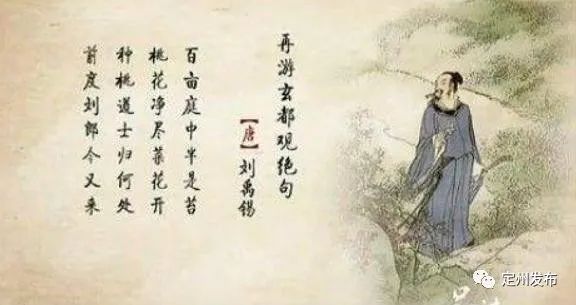 再游玄都观绝句
【唐】刘禹锡
百亩庭中半是苔
桃花净尽菜花开
种桃道士归何处
前度刘郎今又来
定州发布